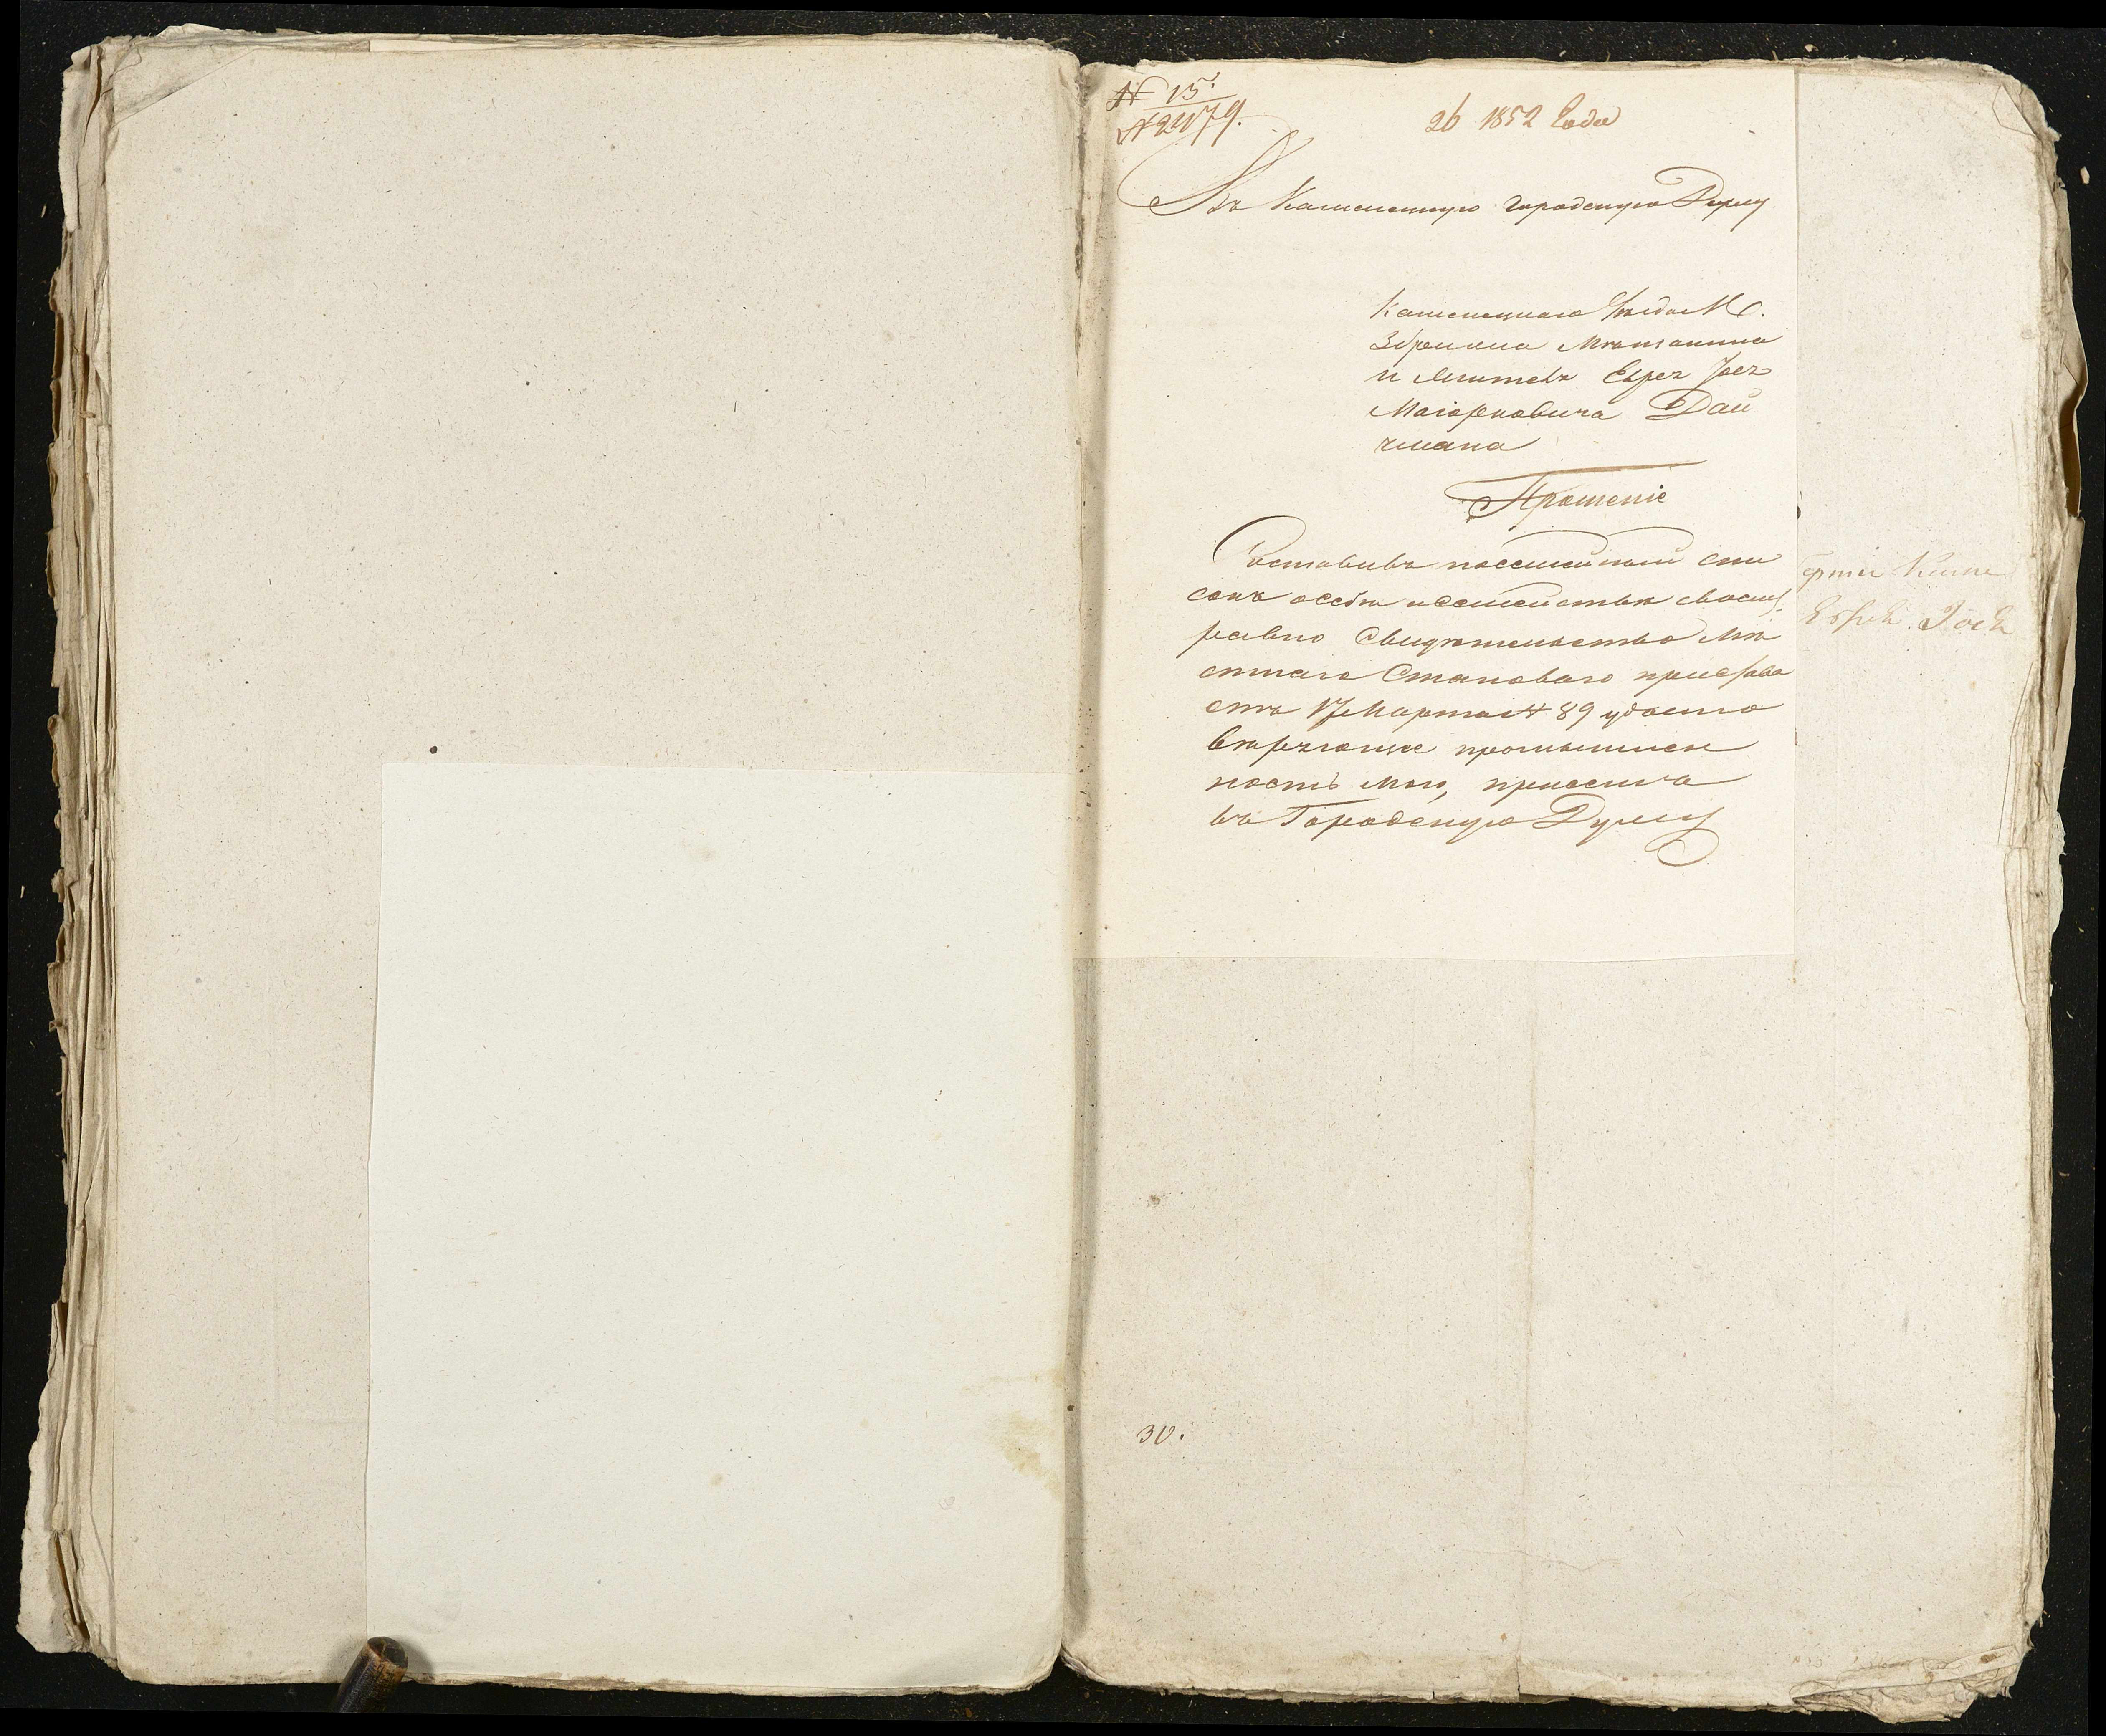 № 15.
№ 2479.
26 1852 Года
Въ Каменецкую Городскую Думу
Каменецкаго Уѣзда М.
Збрижка Мѣщанина
и Жителя Еврея Іося
Маіорковича Дай
чмана
Прошеніе
Составивъ посемейный спи
сокъ о себѣ и семействѣ своемъ
равно Свидѣтельство Мѣ
стнаго Становаго пристава
отъ 17 Марта № 89 удосто
вѣряющее промышлен
ность мою, приносить
въ Городскую Думу
Еврея Іося
30.